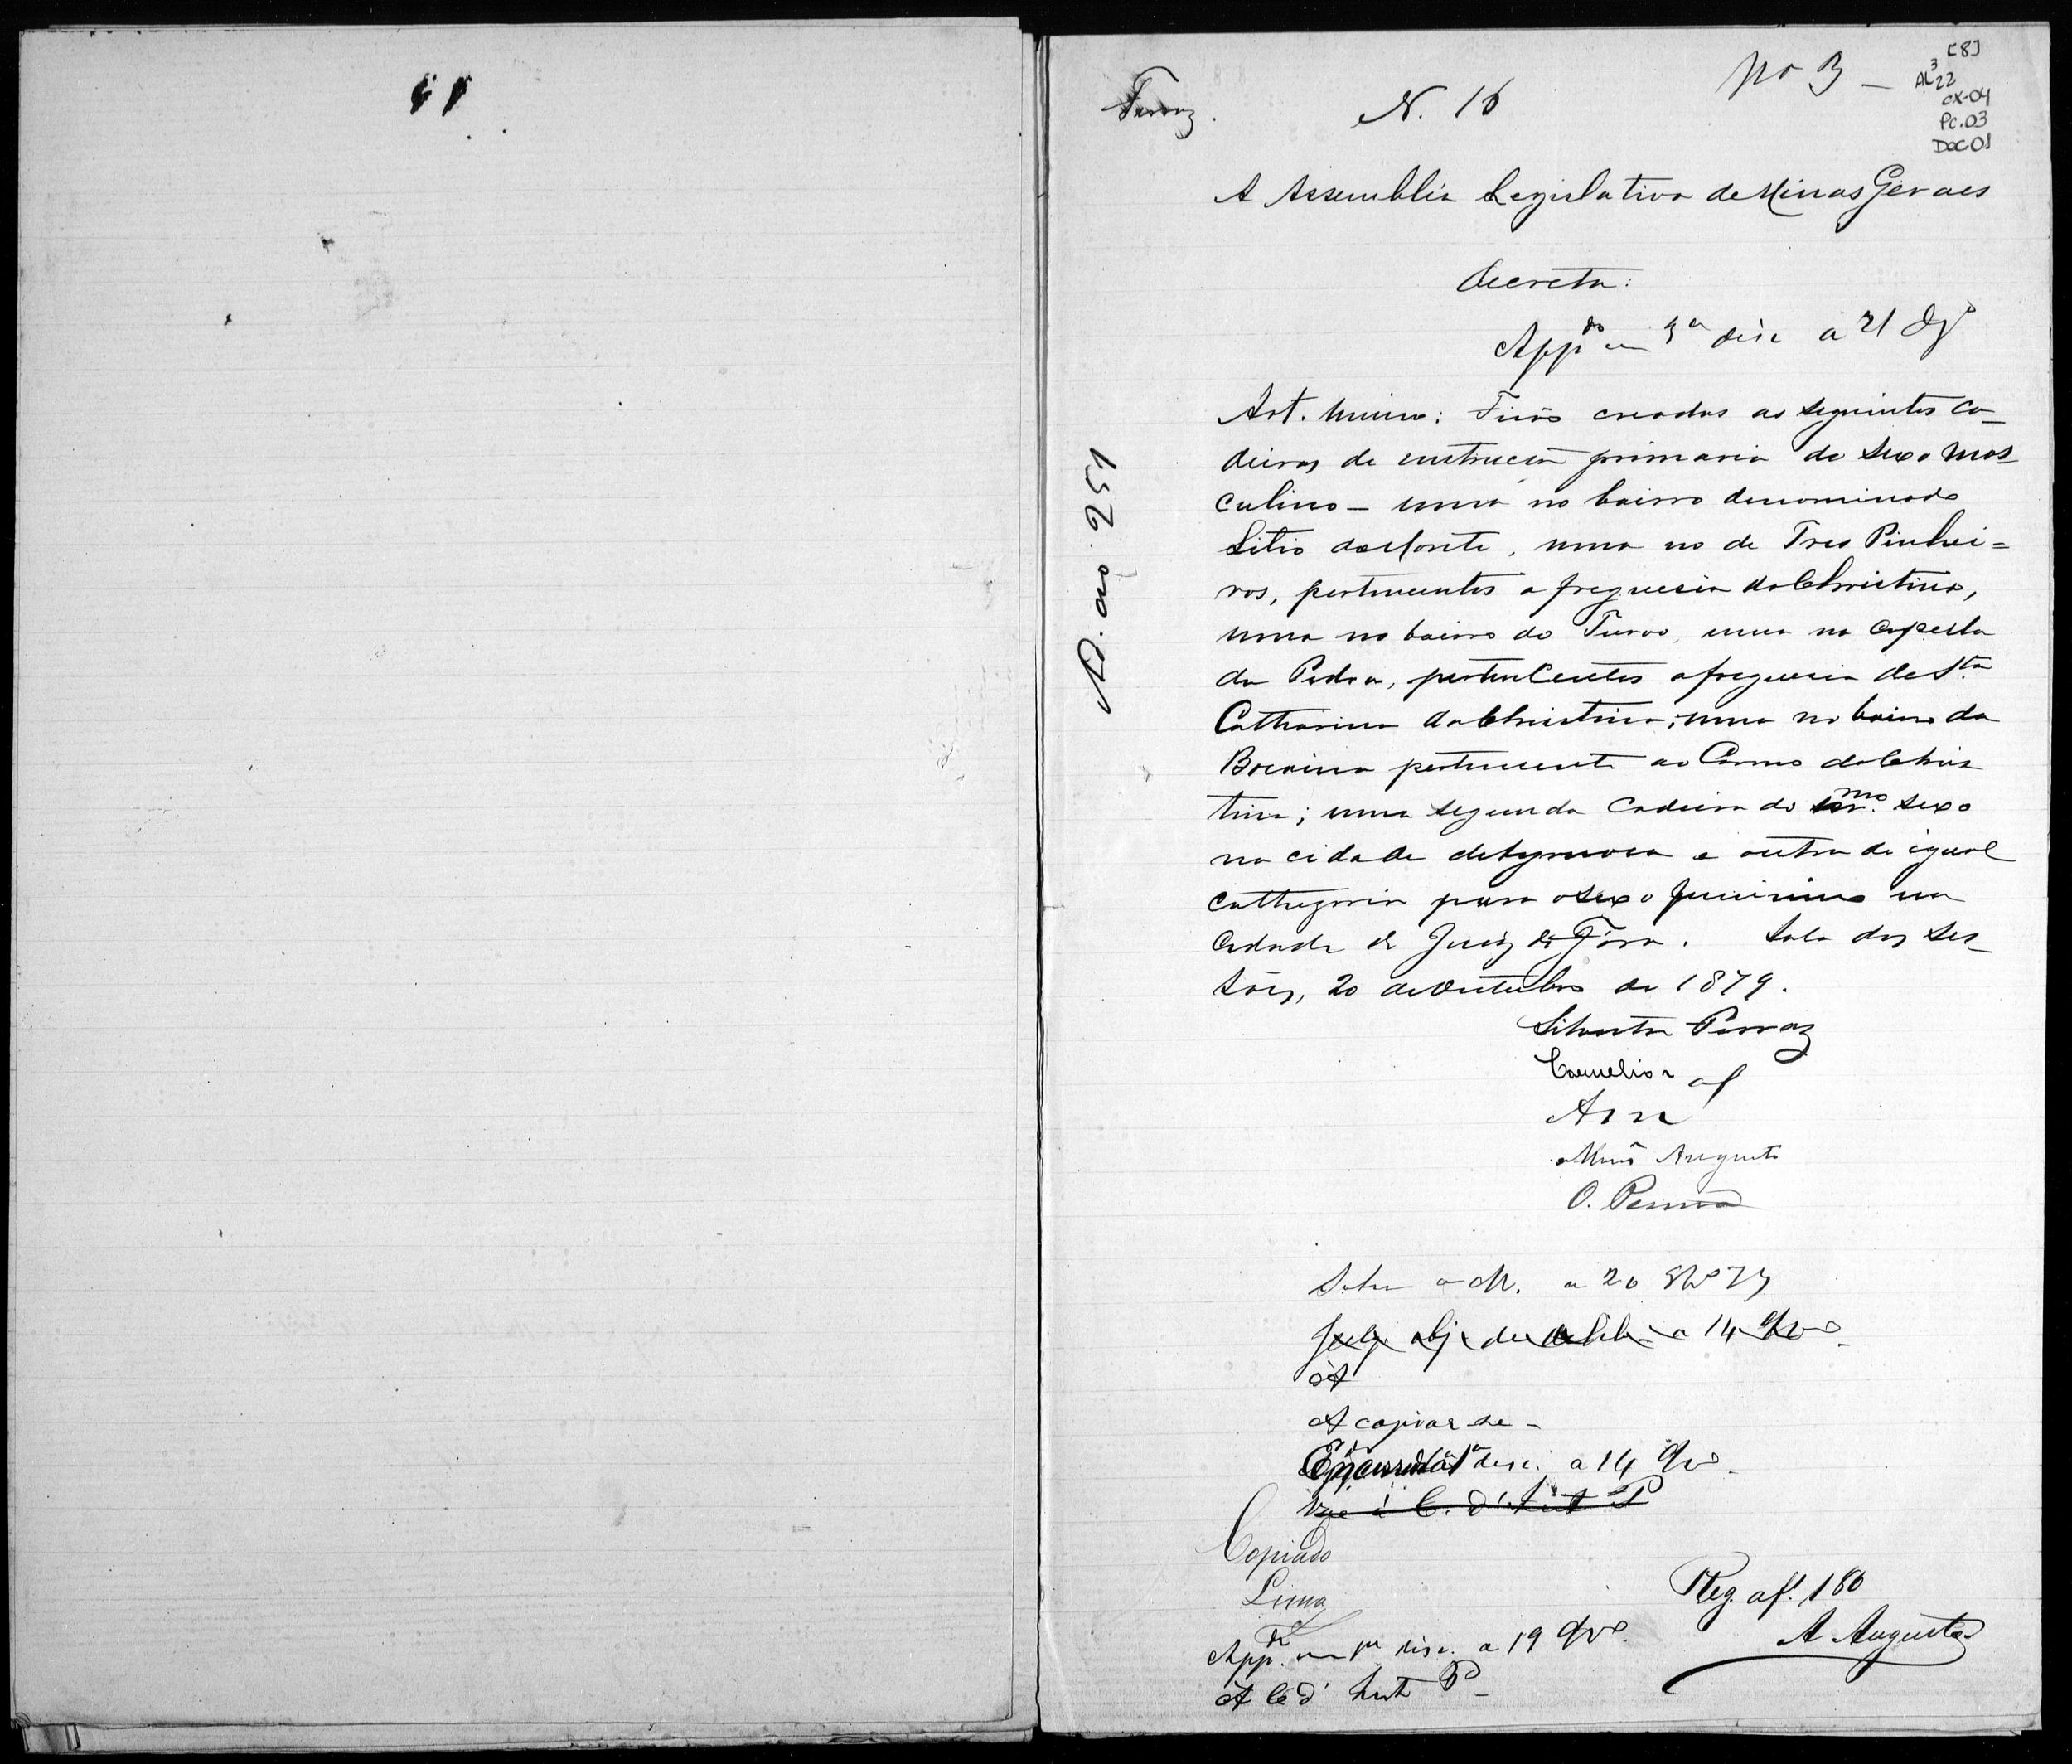 [8]
AL³22
cx-04
Pc.03
Doc 01
Nº 3 -
Ferraz.
N. 16
A Assembléa Legislativa de Minas Geraes
decreta:
App.do em 3a disc a 21 
Art. Unico: Ficão creadas as seguintes ca-
deiras de instrucção primaria do sexo mas
culino - uma no bairro denominado
Sitio da Ponte, uma no de Tres Pinhei=
ros, pertencentes a freguesia da Christina,
uma no bairro do Turvo, uma na capella
da Pedra, pertencentes a freguesia de Sta.
Catharina da Christina; uma no bairro da
Bocaina pertencente ao Carmo da Chris
tina; uma segunda cadeira do mo. sexo
na cidade de e outra de igual
cathegoria para o sexo feminino na
cidade de Juiz de Fóra. Sala das ses-
sões, 20 de Outubro de 1879.
Silvestre Ferraz
Cornelio
Augusto
O. Penna
a 20 8bro 79
a 14 9bro
A
A copiar-se -
disc. a 14 9bro
Copiado
Lima
App.do em 1a disc. a 19 9bro.
Á C. d' Inst. P
Reg. a f. 180
A Augusto
A. ao 251